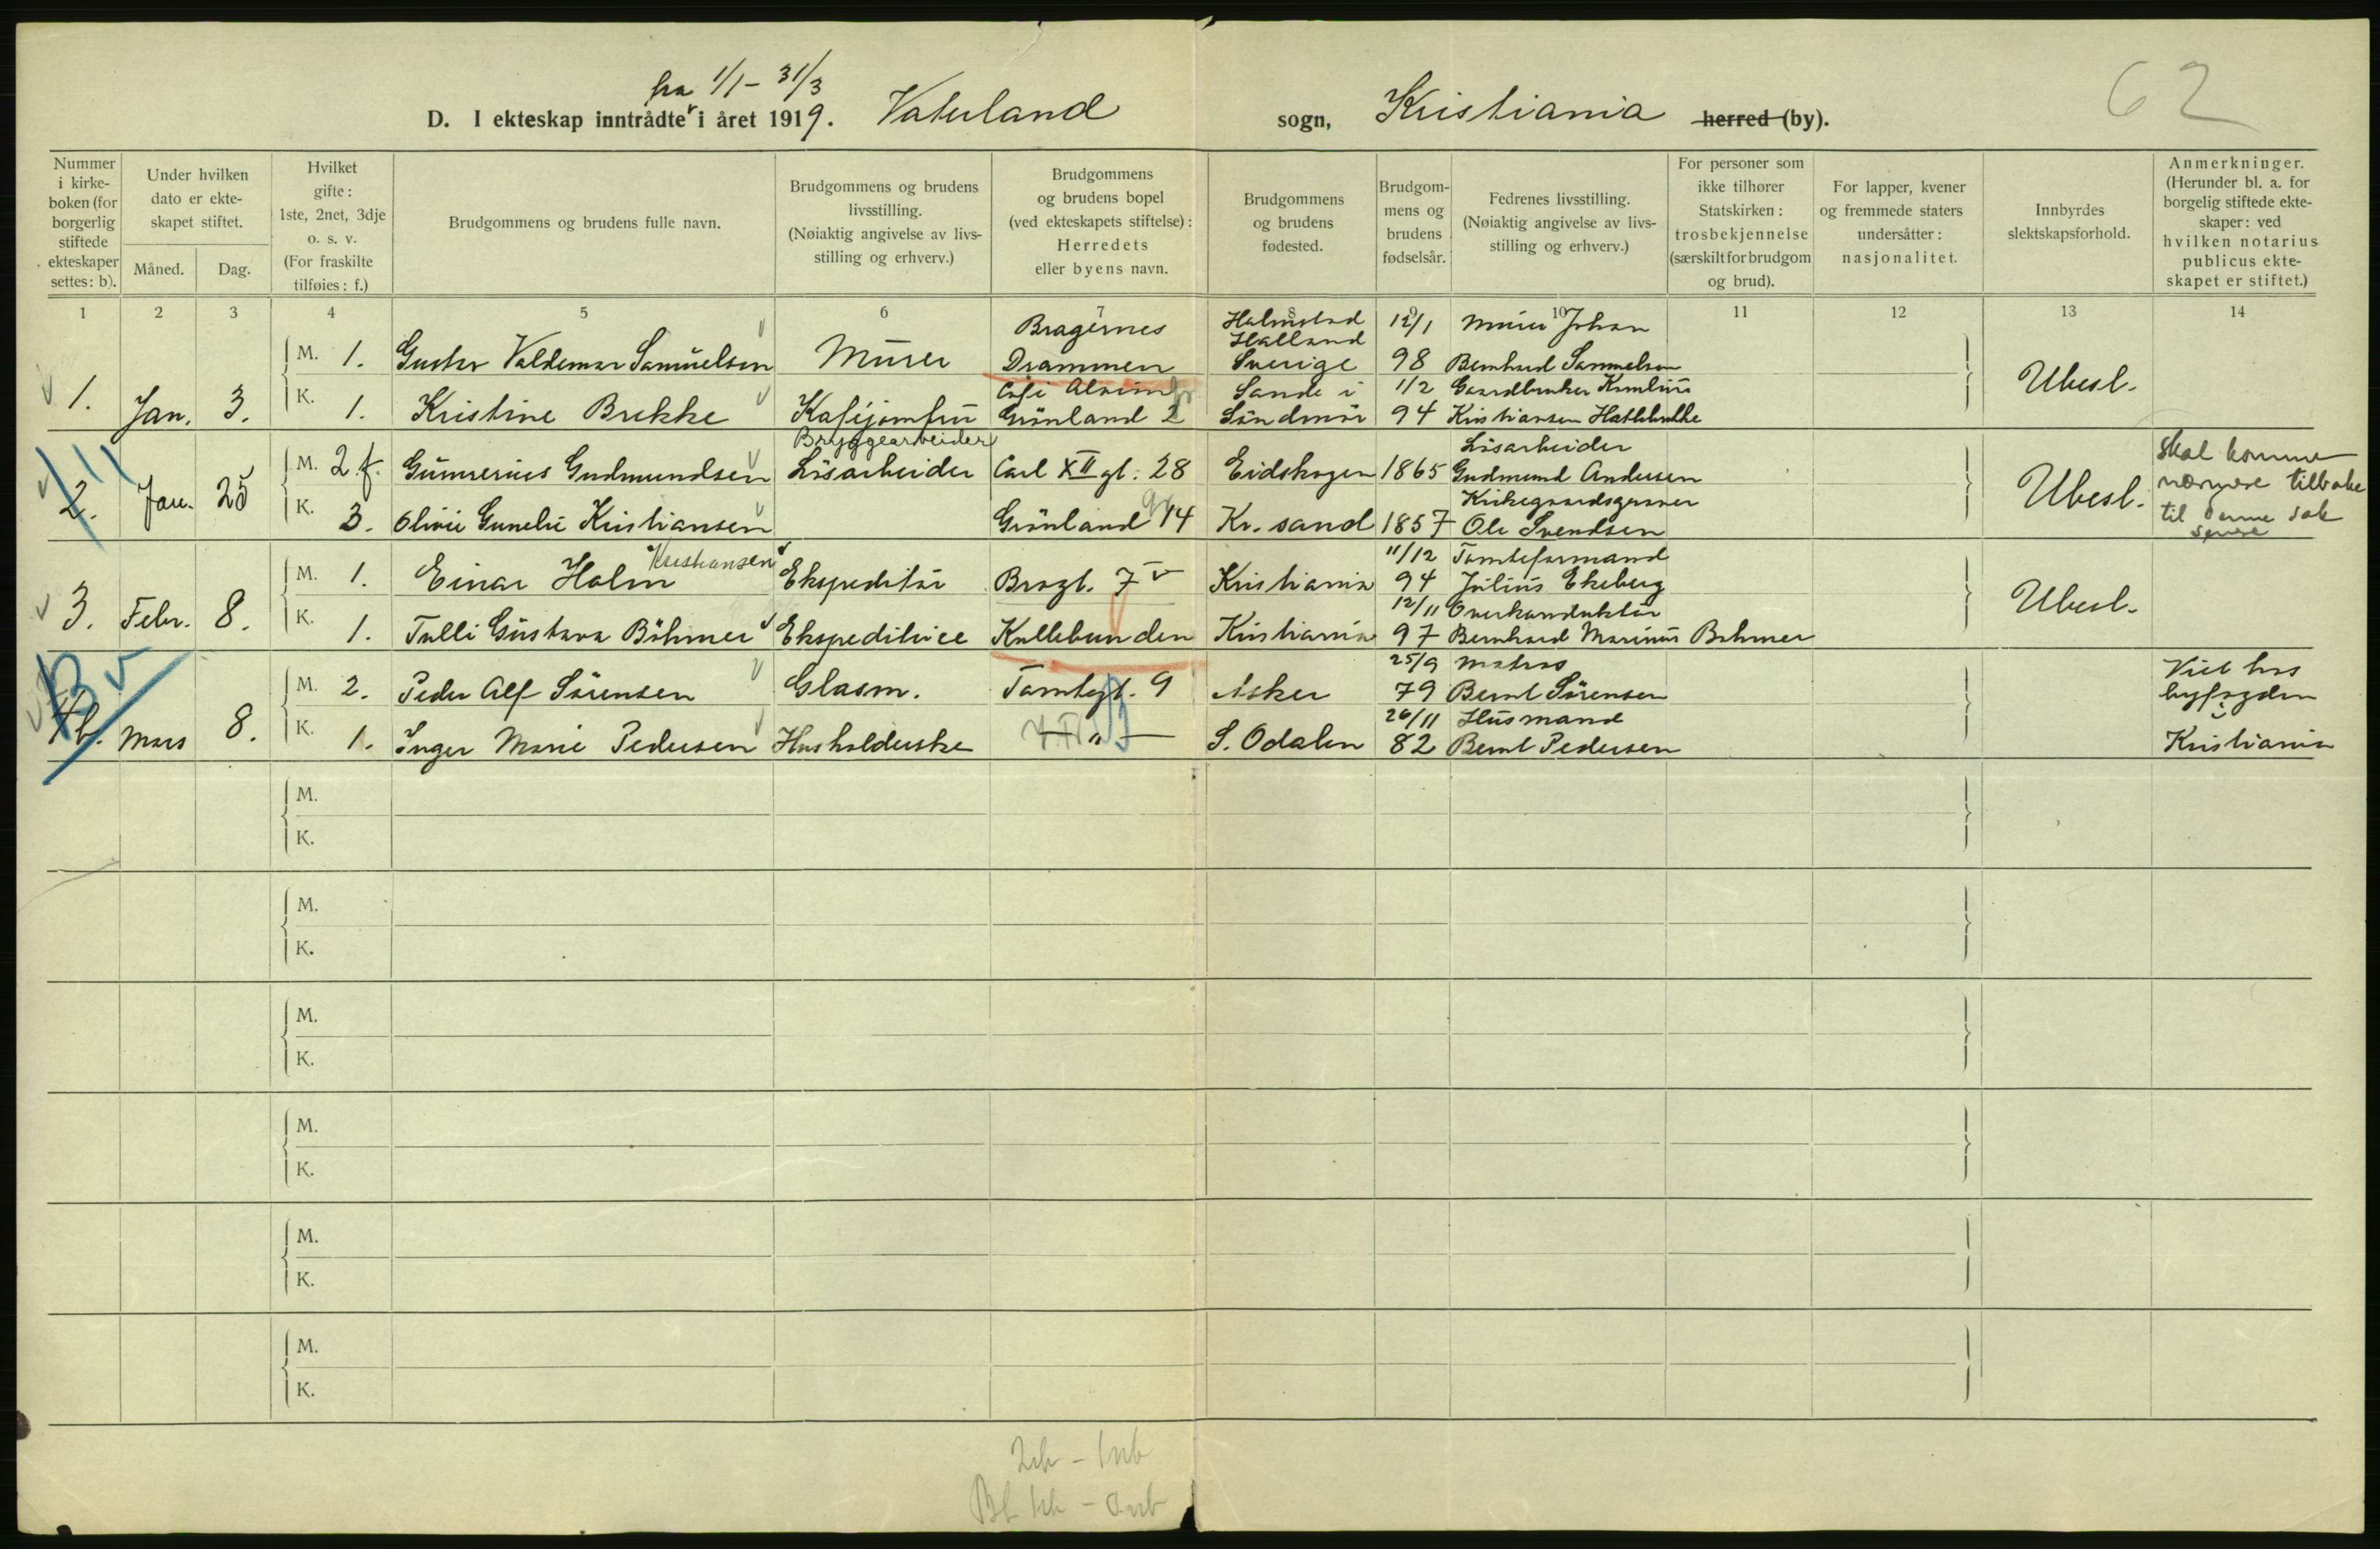 fra 1/1 - 31/3
62
D. I ekteskap inntrådte i året 1919. Vaterland sogn, Kristiania herred (by).
Nummer i kirkeboken (for borgerlig stiftede ekteskaper settes: b).
Under hvilken dato er ekteskapet stiftet.
Måned. Dag.
Hvilket gifte: 1ste, 2net, 3dje o. s. v. (For fraskilte tilføies: f.)
Brudgommens og brudens fulle navn.
Brudgommens og brudens livsstilling. (Nøiaktig angivelse av livsstilling og erhverv.)
Brudgommens og brudens bopel (ved ekteskapets stiftelse): Herredets eller byens navn.
Brudgommens og brudens fødested.
Brudgommens og brudens fødselsår.
Fedrenes livsstilling. (Nøiaktig angivelse av livsstilling og erhverv.)
For personer som ikke tilhører Statskirken: trosbekjennelse (særskilt for brudgom og brud).
For lapper, kvener og fremmede staters undersåtter: nasjonalitet.
Innbyrdes slektskapsforhold.
Anmerkninger. (Herunder bl. a. for borgelig stiftede ekteskaper: ved hvilken notarius publicus ekteskapet er stiftet.)
1 2 3 4 5 6 7 8 9 10 11 12 13 14
Bragernes Halmstad 12/1 Murer Johan
Halland
M. 1. Gustav Valdemar Samuelsen Murer Drammen Sverige 98 Bernhard Sammelson
Café Sande i 1/2 Gaardbruker
1. Jan. 3. K. 1. Kristine Brekke Kaféjomfru Grönland 2 Söndmör 94 Kristiansen Hatlebrekke Ubesl.
Bryggearbeider Lösarbeider
M. 2 f. Gunnerius Gudmundsen Lösarbeider Carl XII gt. 28 Eidskogen 1865 Gudmund Andersen
Kirkegaardsgraver
2. Jan. 25 K. 3. Olivie Kristiansen Grönland 14 Kr. sand 1857 Ole Svendsen Ubesl.
Skal komme
nærmere tilbake
til denne sak
senere
Kristiansen 11/12 Tomteformand
M. 1. Einar Holm Ekspeditör Brogt. 7 Kristiania 94 Julius Ekeberg
12/11 Overkonduktör
3. Febr. 8. K. 1. Tulli Gustava Böhmer Ekspeditrice Kullebunden Kristiania 97 Bernhard Marinus Bohmer Ubesl.
25/9 Matros
M. 2. Peder Alf Sörensen Glasm. Tomtegt. 9 Asker 79 Bernt Sörensen
26/11 Husmand
b. Mars 8. K. 1. Inger Marie Pedersen Husholderske — " — S. Odalen 82 Bernt Pedersen
Viet hos
byfogden
i
Kristiania
M.
K.
M.
K.
M.
K.
M.
K.
M.
K.
M.
K.